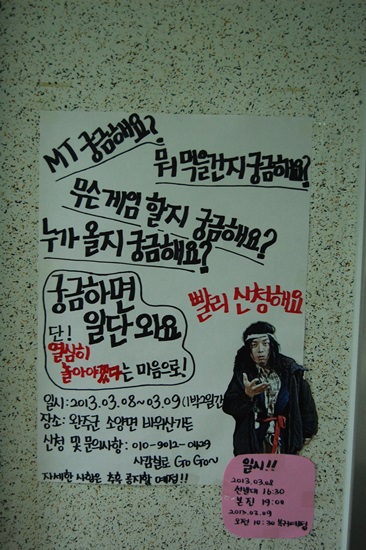 MT 궁금해요?
뭐 먹을건지 궁금해요?
무슨게임 할지 궁금해요?
누가 올지 궁금해요?
궁금하면
일단 와요
단!
열심히
놀아야겠다는 마음으로!
빨리 신청해요
일시:2013.03.08~03.09(1박2일간
장소: 완주군 소양면 바위산가든
신청 및 문의사항: 010-9012-0429
사감실로 Go Go~
자세한 사항은 추후 공지할 예정!!
일시!!
2013.03.08
선발대 16:30
본진 19:00
2013.03.09
오전 10:30